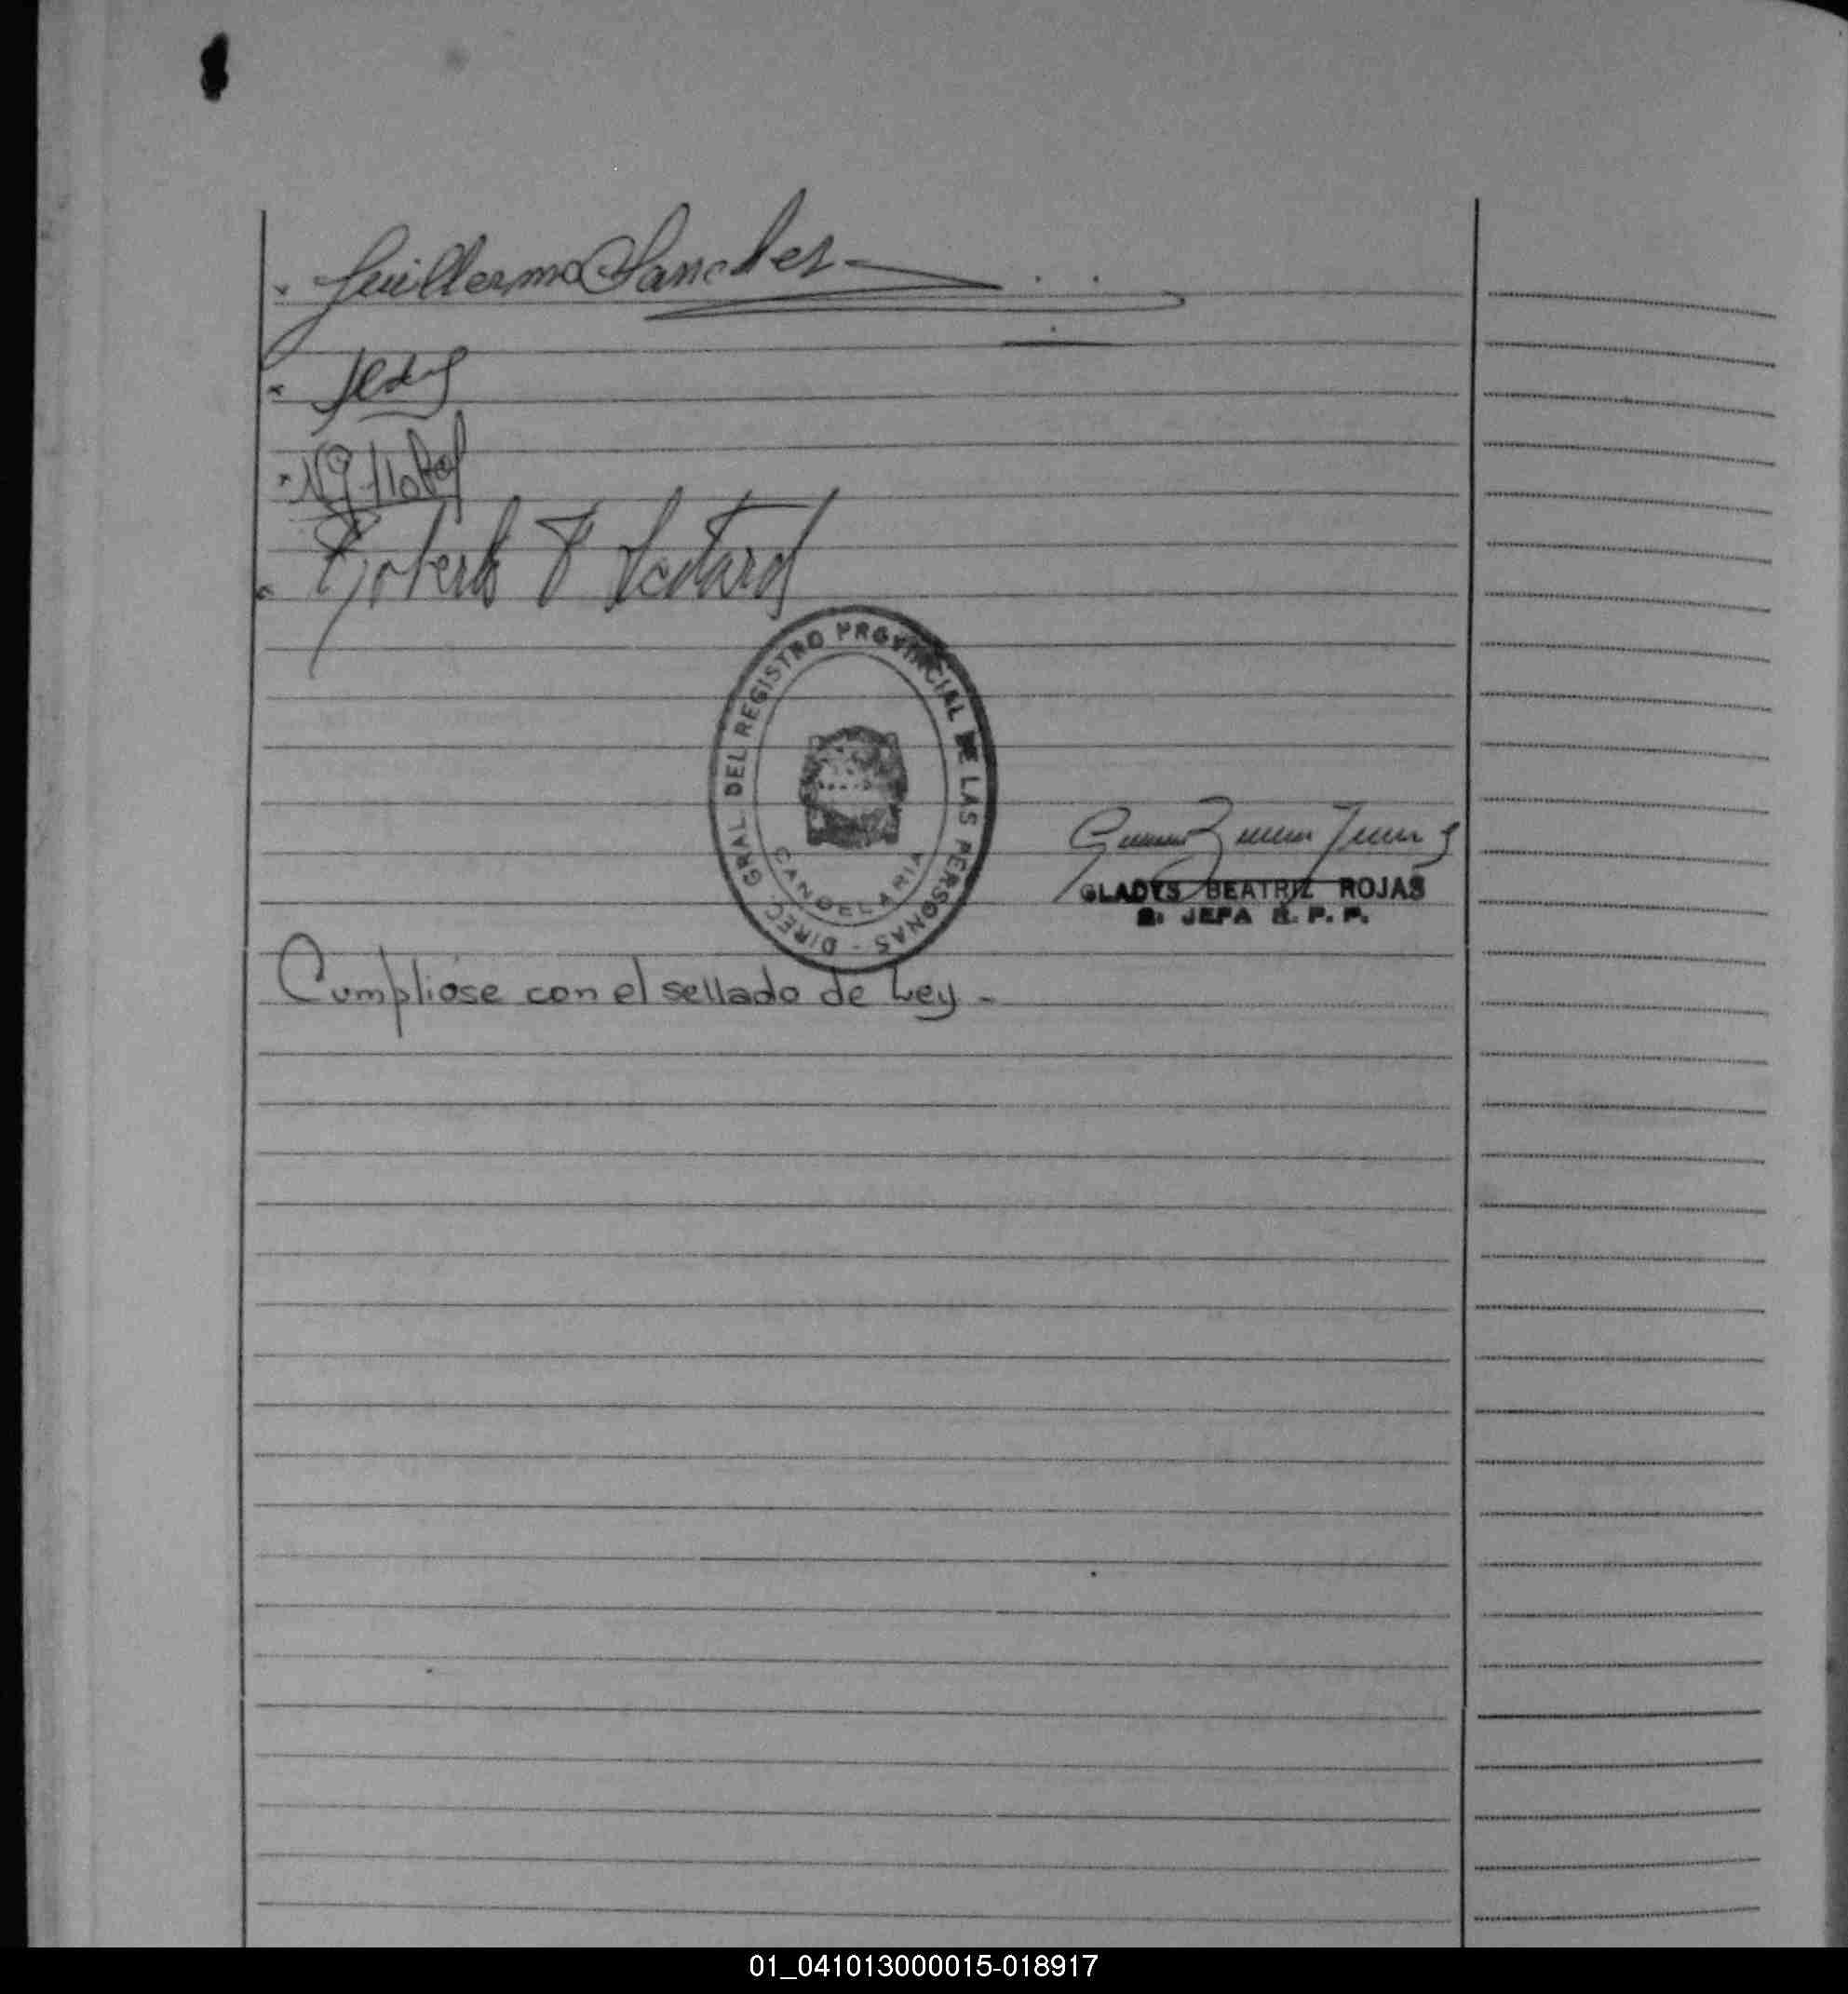 Guillermo Sanchez
Roberto
DIREC. GRAL. DEL REGISTRO PROVINCIAL DE LAS PERSONAS -
CANDELARIA
GLADYS BEATRIZ ROJAS
S. JEFA R. P. P.
Cumplióse con el sellado de Ley -
01_041013000015-018917